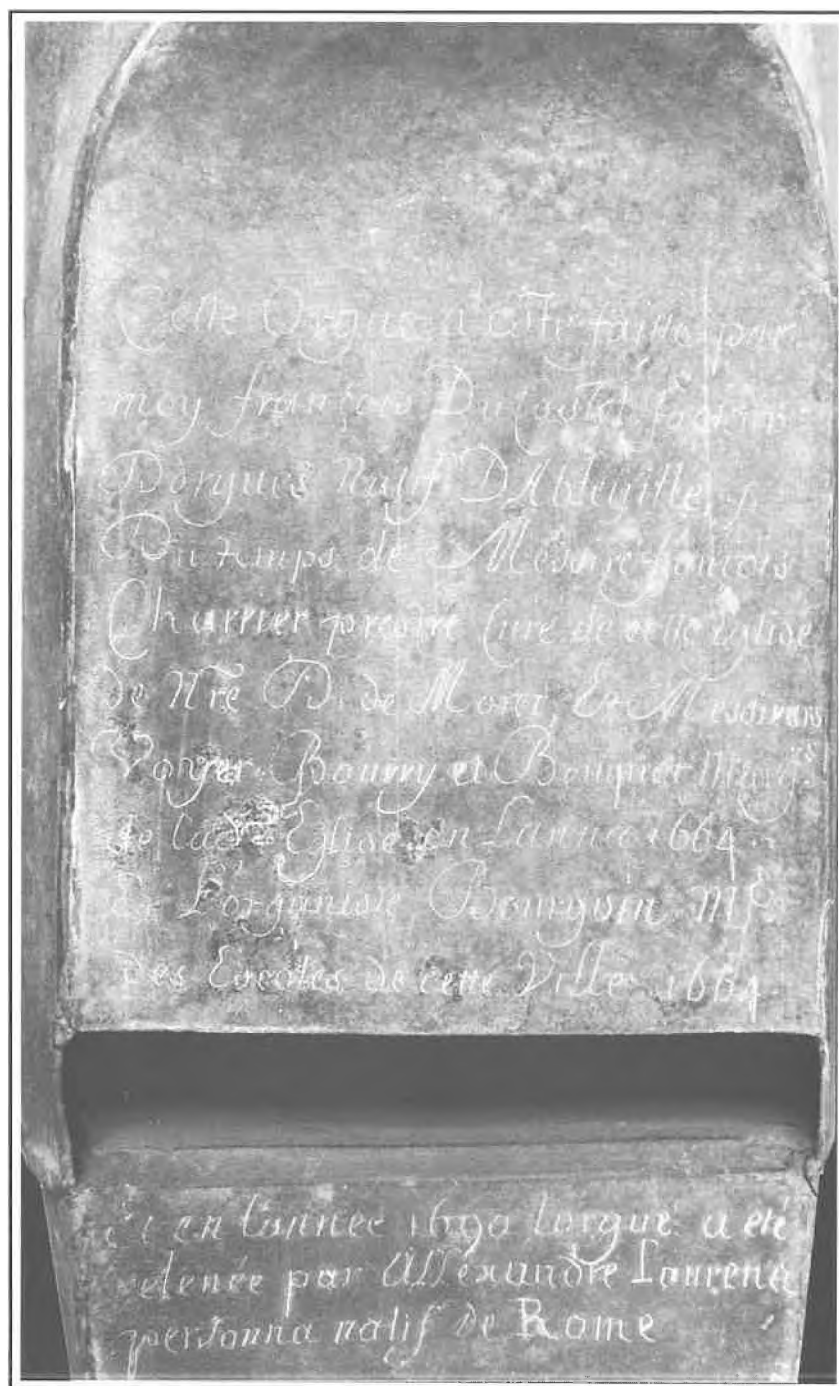 Cette Orgue a esté faitte par
moy françois Du facteur
Dorgues Natif DAbbeuille
Du temps de Messire francois
Charrier prestre Cure de cette Eglise
de Nre D. de Moret, Et Messieurs
Vorger Bourry et Bouquet
de lad. Eglise en Lannee 1664
Et Lorganiste Bourguin Mr
Des Escoles de cette Ville 1664
Et en lannee 1690 lorgue a eté
relevée par Allexandre Laurena
personna natif de Rome